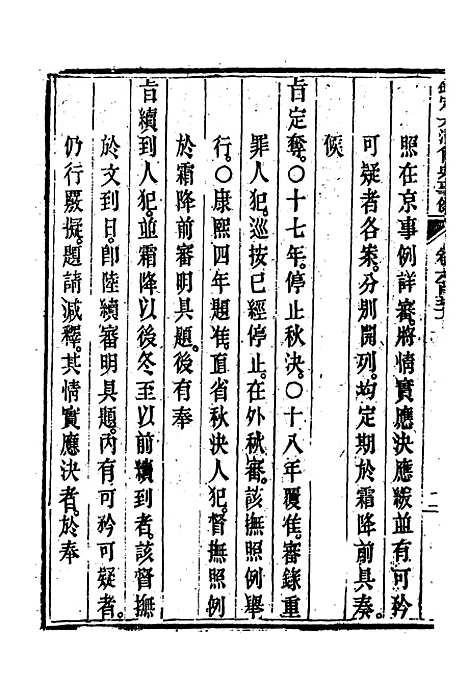 欽定大清會典事例
二
照在京事例詳審。將情實應決應緩並有可矜
可疑者各案。分別開列。均定期於霜降前具奏。
候
旨定奪。○十七年。停止秋決。○十八年覆准。審錄重
罪人犯。巡按已經停止。在外秋審。該撫照例舉
行。○康熙四年題准。直省秋決人犯。督撫照例
於霜降前審明具題。後有奉
旨續到人犯。並霜降以後冬至以前續到者。該督撫
於文到日。卽陸續審明具題。內有可矜可疑者。
仍行嚴擬。題請減釋。其情實應決者。於奉